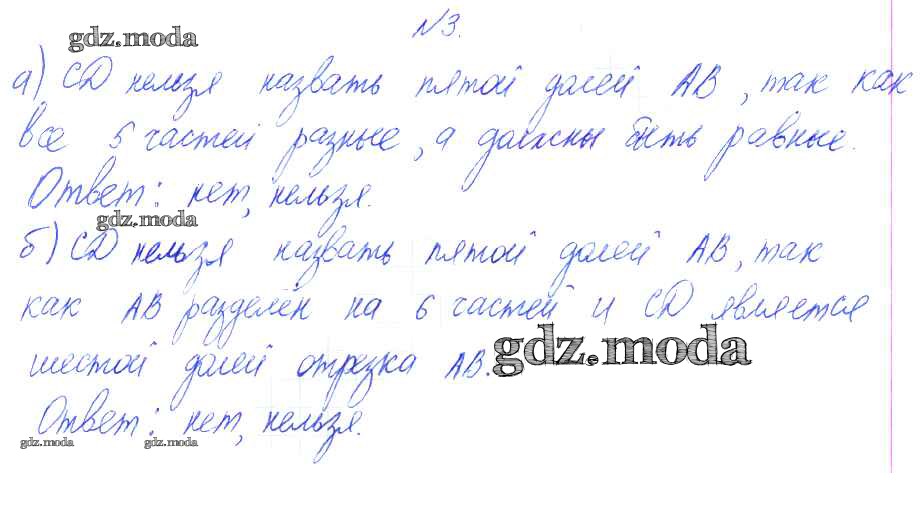 №3.
gdz.moda
а) CD нельзя назвать пятой долей AB, так как
все 5 частей разные, а должны быть равные.
Ответ: нет, нельзя.
gdz.moda
б) CD нельзя назвать пятой долей AB, так
как AB разделён на 6 частей и CD является
шестой долей отрезка AB.
gdz.moda
Ответ: нет, нельзя.
gdz.moda gdz.moda